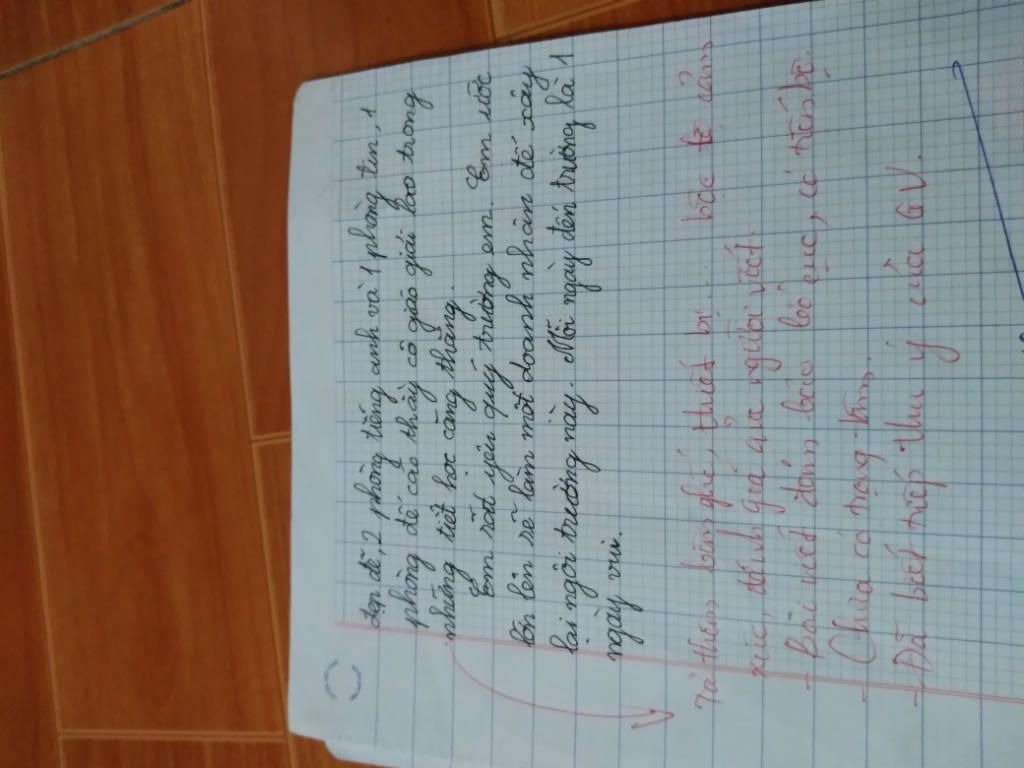 đẹp đẽ, 2 phòng tiếng anh và 1 phòng tin, 1
phòng để các thầy cô giáo giải lao trong
những tiết học căng thẳng.
Em rất yêu quý trường em. Em ước
lớn lên sẽ làm một doanh nhân để xây
lại ngôi trường này. Mỗi ngày đến trường là 1
ngày vui.
Tả thêm bàn ghế, thiết bị... bộc lộ cảm
xúc, đánh giá của người viết.
- Bài viết đảm bảo bố cục, có tiến bộ.
- Chưa có trọng tâm.
- Đã biết tiếp thu ý của GV.